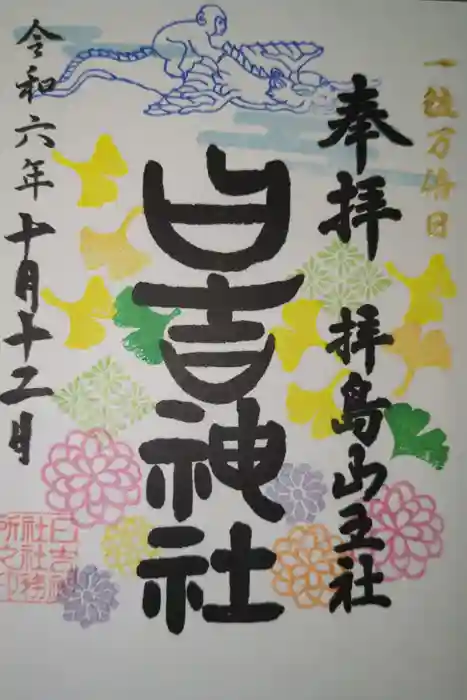 一粒万倍日
奉拝 拝島山王社
日吉神社
令和六年十月十二日
日吉神社社務所之印